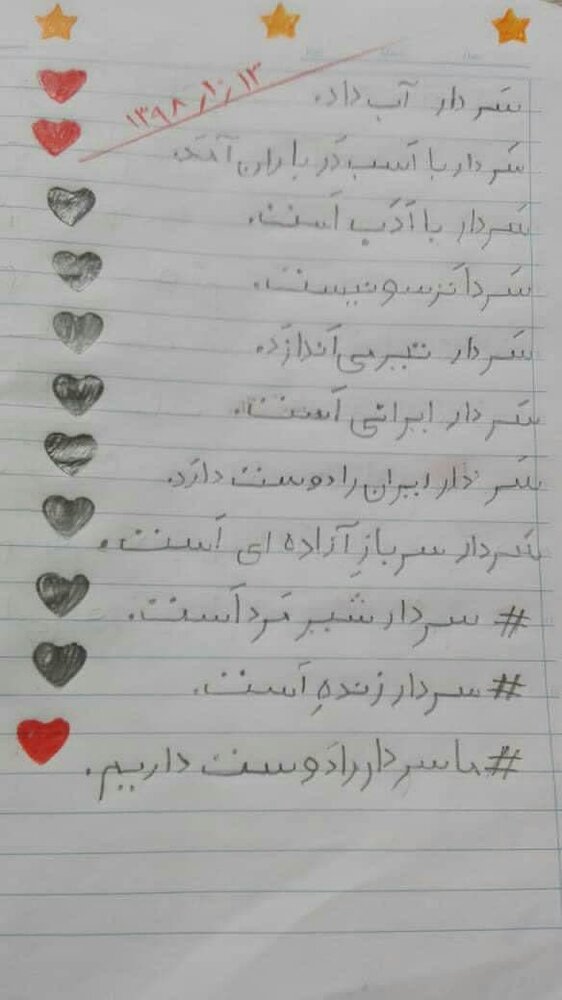 ۱۳۹۸/۱۰/۱۳
سَردار آب داد.
سَردار با اَسب دَر باران آمَد.
سَردار با اَدَب اَست.
سَردار تَرسو نیست.
سَردار تیر می اَندازَد.
سَردار ایرانی اَست.
سَردار ایران را دوست دارَد.
سَردار سربازِ آزاده ای اَست.
# سردار شیر مَرد اَست.
# سردار زنده اَست.
# ما سردار را دوست داریم.